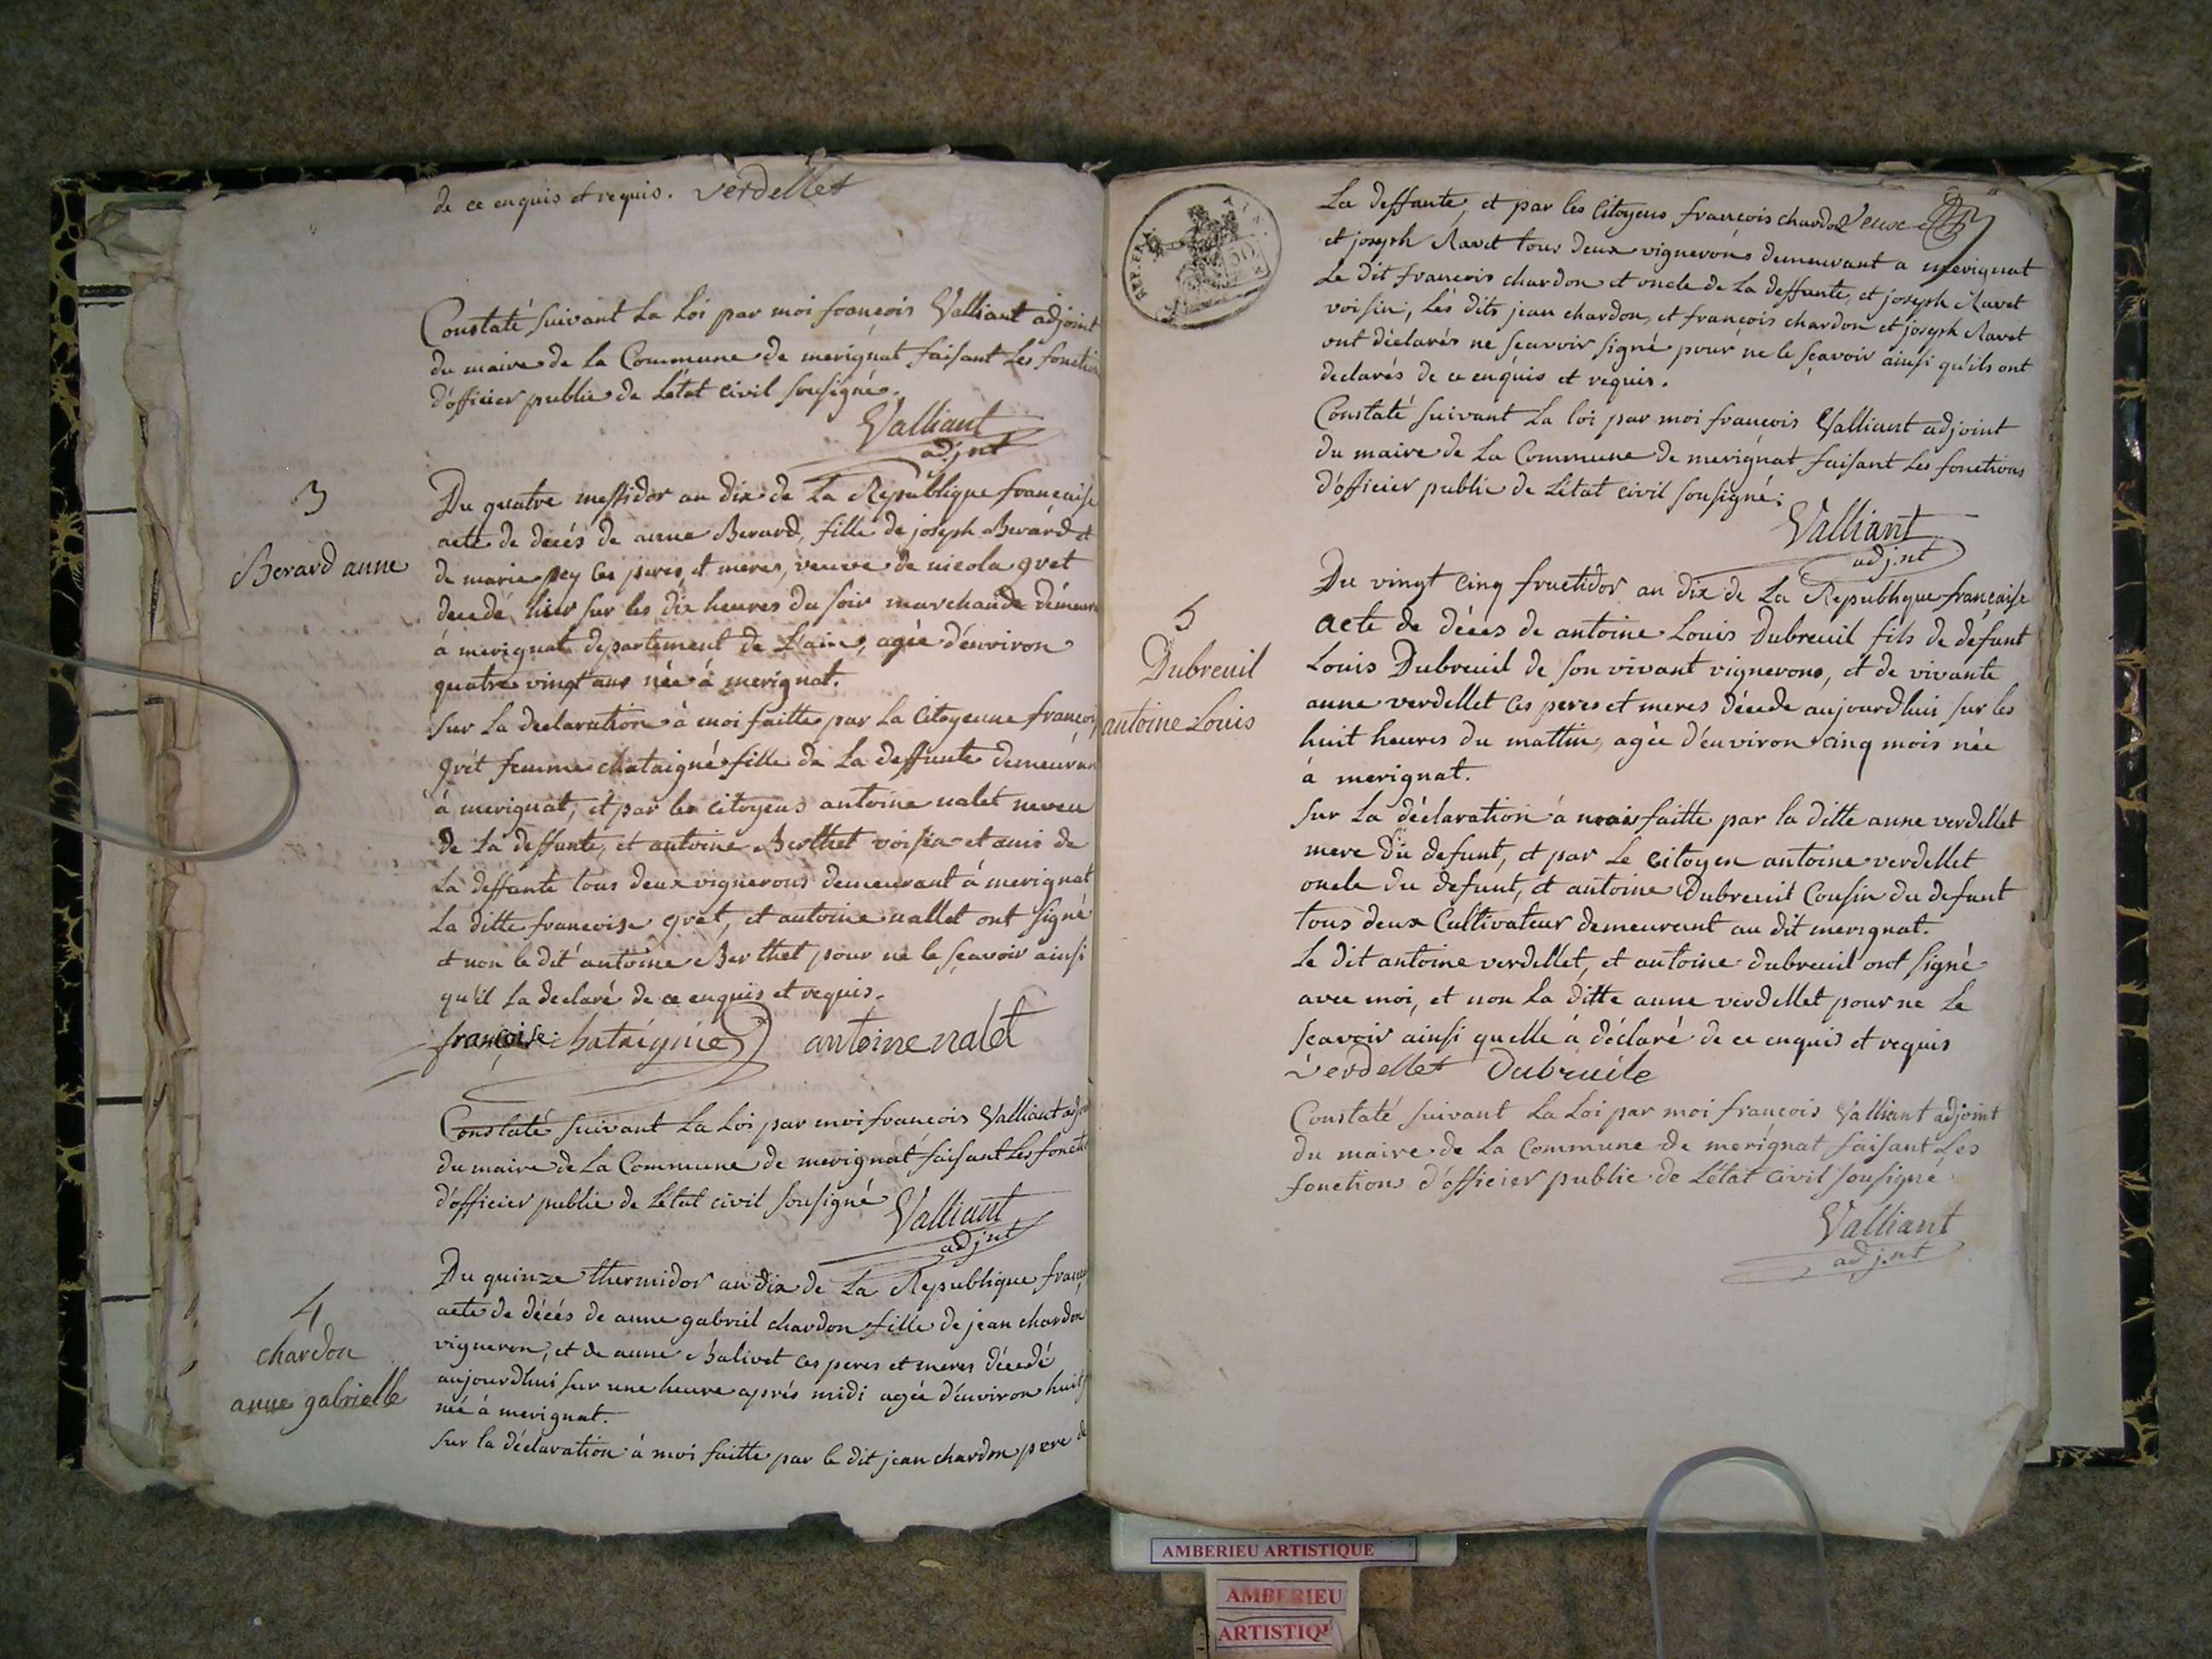 de ce enquis et requis. verdellet
Constaté suivant La Loi par moi françois Valliant adjoint
du maire de La Commune de merignat faisant Les fonctio
d'officier public de L'état civil sousigné.
Valliant
adj.nt
3
Berard anne
Du quatre messidor an dix de La Republique francaise
acte de décés de anne Berard, fille de joseph Berard et
de marie pey ces peres et meres, veuve de nicola gret
decedé hier sur les dix heures du soir marchande démeura
à merignat departement de L'ain, agée d'environ
quatre vingt ans née à merignat.
Sur La declaration à moi faitte par La Citoyenne françois
grêt femme chataigné fille de La deffunte demeuran
à merignat, et par les citoyens antoine nalet neveu
de La deffante, et antoine Berthet voisin et ami de
La deffante tous deux vignerons demeurant à merignat
La ditte francoise gret, et antoine nallet ont signé
et non le dit antoine Berthet pour ne le sçavoir ainsi
qu'il La declaré de ce enquis et requis.
françoise chataignie antoine nalet
Constaté suivant La Loi par moi francois Valliant adjo
du maire de La Commune de merignat faisant Les foncti
d'officier public de L'état civil sousigné
Valliant
adj.nt
4
chardon
anne gabrielle
Du quinze thermidor an dix de La Republique franç
acte de décés de anne gabriel chardon fille de jean chardon
vigneron, et de anne Balivet ces peres et meres décedé
aujourdhui sur une heure aprés midi agée d'environ huit
née à merignat.
Sur la déclaration à moi faitte par le dit jean chardon pere de
La deffante, et par les Citoyens françois chardon
et joseph Ravet tous deux vignerons demeurant a merignat
Le dit francois chardon et oncle de La deffante, et joseph Ravet
voisin; Les dits jean chardon, et françois chardon et joseph Ravet
ont déclarés ne sçavoir signé pour ne le sçavoir ainsi qu'ils ont
declarés de ce enquis et requis.
Constaté suivant La loi par moi francois Valliant adjoint
du maire de La Commune de merignat faisant Les fonctions
d'officier public de L'état civil sousigné.
Valliant
adj.nt
5
Dubreuil
antoine Louis
Du vingt cinq fructidor an dix de La Republique française
acte de décés de antoine Louis Dubreuil fils de défunt
Louis Dubreuil de son vivant vignerons, et de vivante
anne verdellet ces peres et meres décede aujourdhui sur les
huit heures du mattin, agée d'environ cinq mois née
à merignat.
Sur La déclaration à moi faitte par la ditte anne verdellet
mere du defunt, et par Le citoyen antoine verdellet
oncle du defunt, et antoine Dubreuil Cousin du defunt
tous deux Cultivateur demeurant au dit merignat.
Le dit antoine verdellet, et antoine dubreuil ont signé
avec moi, et non La ditte anne verdellet pour ne Le
sçavoir ainsi quelle à déclaré de ce enquis et requis
verdellet Dubruile
Constaté suivant La Loi par moi francois Valliant adjoint
du maire de La Commune de merignat faisant Les
fonctions d'officier public de L'état civil sousigné
Valliant
adj.nt
AMBERIEU ARTISTIQUE
AMBERIEU
ARTISTIQU